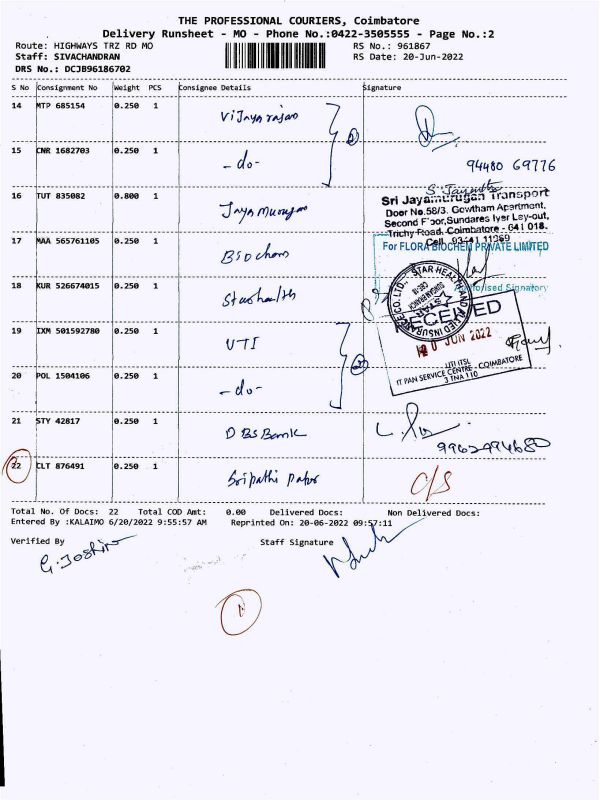 THE PROFESSIONAL COURIERS, Coimbatore
Delivery Runsheet - MO - Phone No.:0422-3505555 - Page No.:2
Route: HIGHWAYS TRZ RD MO
RS No.: 961867
Staff: SIVACHANDRAN
RS Date: 20-Jun-2022
DRS No.: DCJB96186702
S No Consignment No Weight PCS Consignee Details Signature
14 MTP 685154 0.250 1 Vijayarajan
15 CNR 1682703 0.250 1 -do-
94480 69776
16 TUT 835082 0.800 1 Jayamurugan
Sri Jayamurugan Transport
Door No.58/3, Gowtham Apartment,
Second Floor,Sundares Iyer Lay-out,
Trichy Road, Coimbatore - 641 018.
Cell: 93441 11969
17 MAA 565761105 0.250 1 Biochem
For FLORA BIOCHEM PRIVATE LIMITED
Authorised Signatory
18 KUR 526674015 0.250 1 Starhealth
STAR HEALTH AND ALLIED INSURANCE CO. LTD.
19 IXM 501592780 0.250 1 UTI
RECEIVED
20 JUN 2022
UTI ITSL
IT PAN SERVICE CENTRE - COIMBATORE
3 TNA 110
20 POL 1504106 0.250 1 -do-
21 STY 42817 0.250 1 DBS Bank
9962494680
22 CLT 876491 0.250 1 Sripathi Paper C/S
Total No. Of Docs: 22 Total COD Amt: 0.00 Delivered Docs: Non Delivered Docs:
Entered By :KALAIMO 6/20/2022 9:55:57 AM Reprinted On: 20-06-2022 09:57:11
Verified By Staff Signature
G. Joshin
1